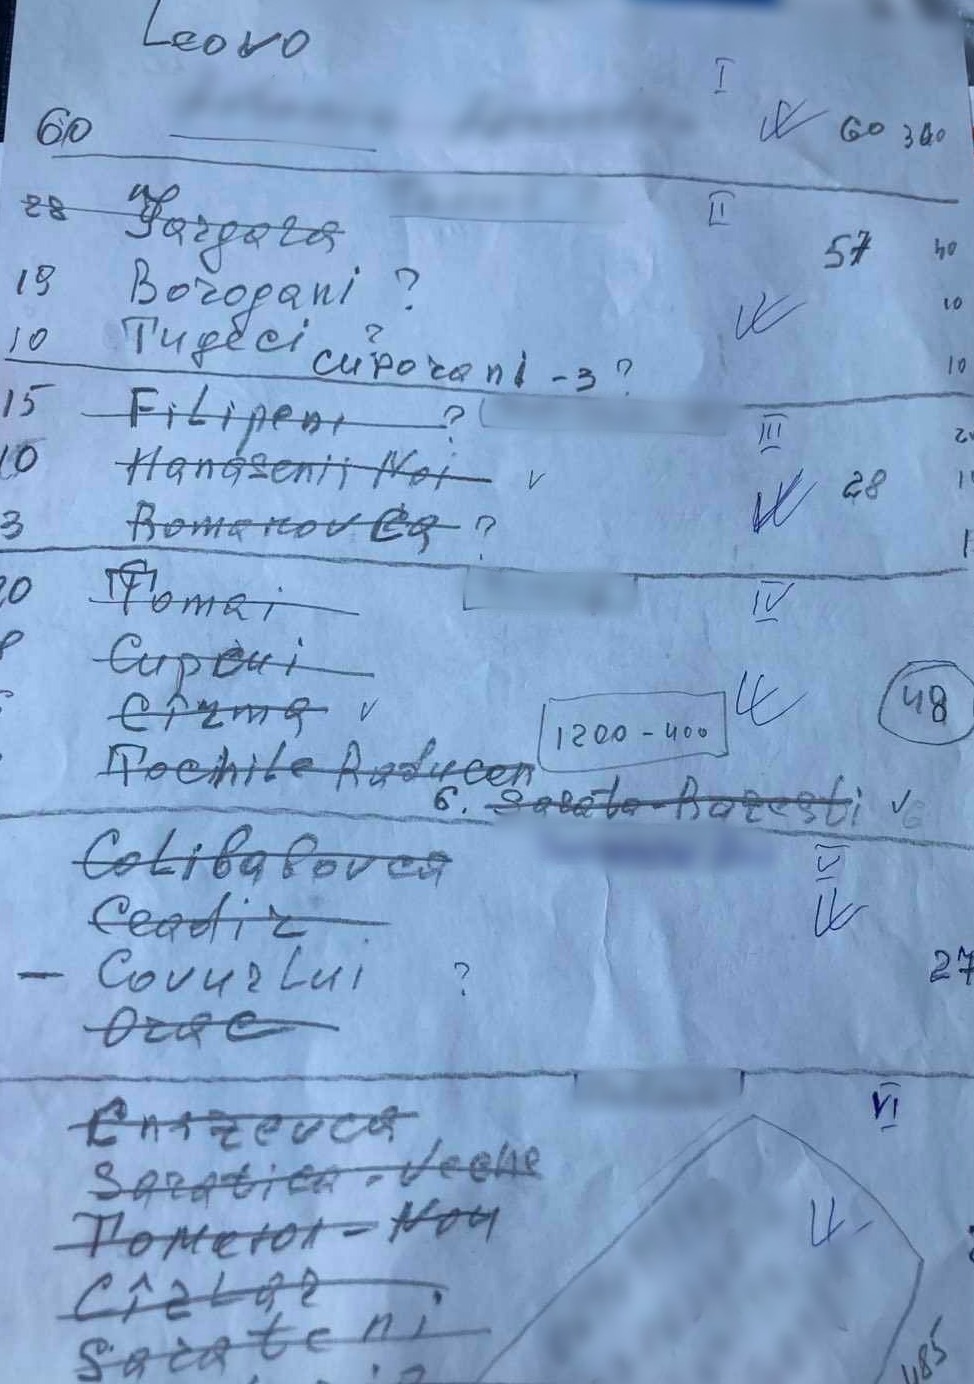 Leovo
I
60 60 340
28 Yargara II
57 40
19 Borogani ? 10
10 Tigeci ?
Cuporani -3 ? 10
15 Filipeni ? III
10 Hanasenii Noi v 28
3 Romanovca ?
Tomai IV
Cupcui
Cîrma v 48
1200-400
Tochile Raducen
6. Sarata-Razesti v
Colibabovca V
Ceadir
- Covurlui ? 27
Orac
VI
Cnezevca
Saratica-Veche
Cîzlar
Sarateni
485